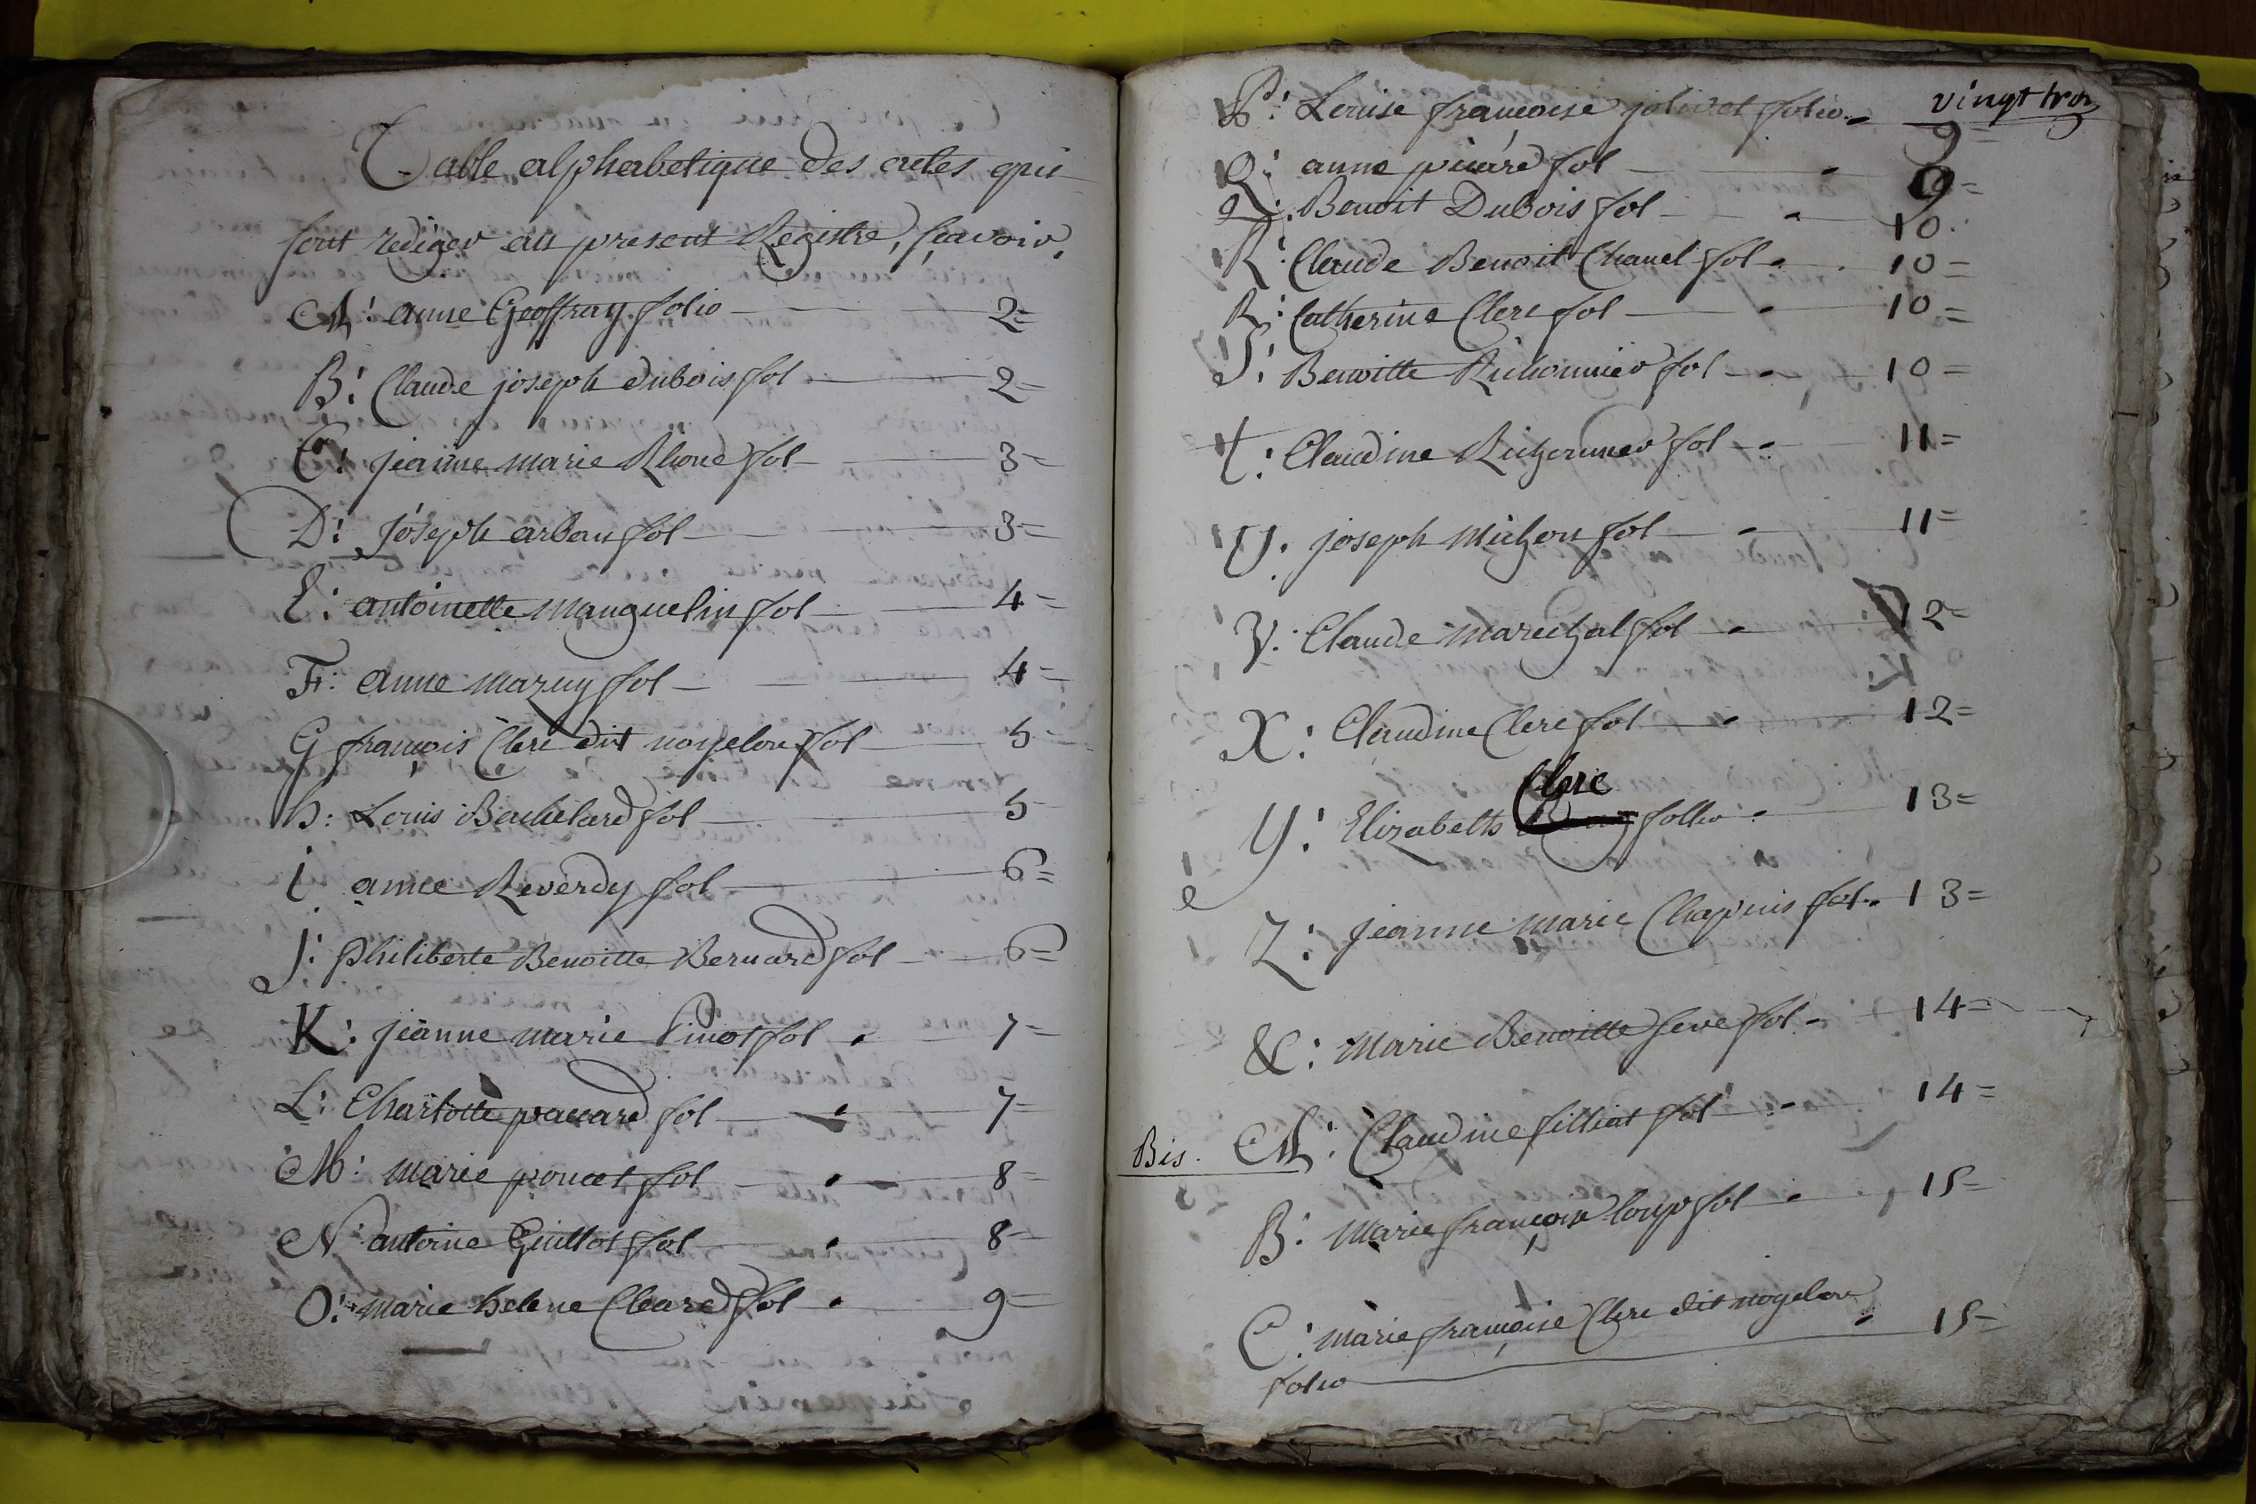 Table alphabetique des actes qui
sont rediger au present Registre, sçavoir,
A: anne Geoffray folio 2=
B: Claude joseph dubois fol 2=
C: jeanne marie Rhone fol 3=
D: joseph arban fol 3=
E: antoinette Manguelin fol 4=
F: anne mazuy fol 4=
G françois Clerc dit noyelou fol 5=
h: Louis Bachelard fol 5
i annee Reverdy fol 6=
J: Philiberte Benoitte Bernard fol 6=
K: jeanne marie Pinot fol 7=
L: Charlotte paccard fol 7=
M: marie poncet fol 8=
N: antoine Guillot fol 8=
O: marie helene Cleard fol 9=
vingt troi
P: Louise françoise jolivet folio 9=
Q: anne picard fol 9=
Q: Benoit Dubois fol 10.
R: Claude Benoit Chanel fol 10=
R: Catherine Clerc fol 10=
S: Benoitte Richonnier fol 10=
t: Claudine Richonnier fol 11=
U: joseph Michon fol 11=
V: Claude marechal fol 12=
X: Claudine Clerc fol 12=
Clerc
Y: Elizabeth follio 13=
Z: jeanne marie Chapuis fol. 13=
&: Marie Benoitte seve fol 14=
Bis. A: Claudine filliat fol 14=
B: Marie françoise loup fol 15=
C: marie françoise Clerc dit noyelou 15=
folio